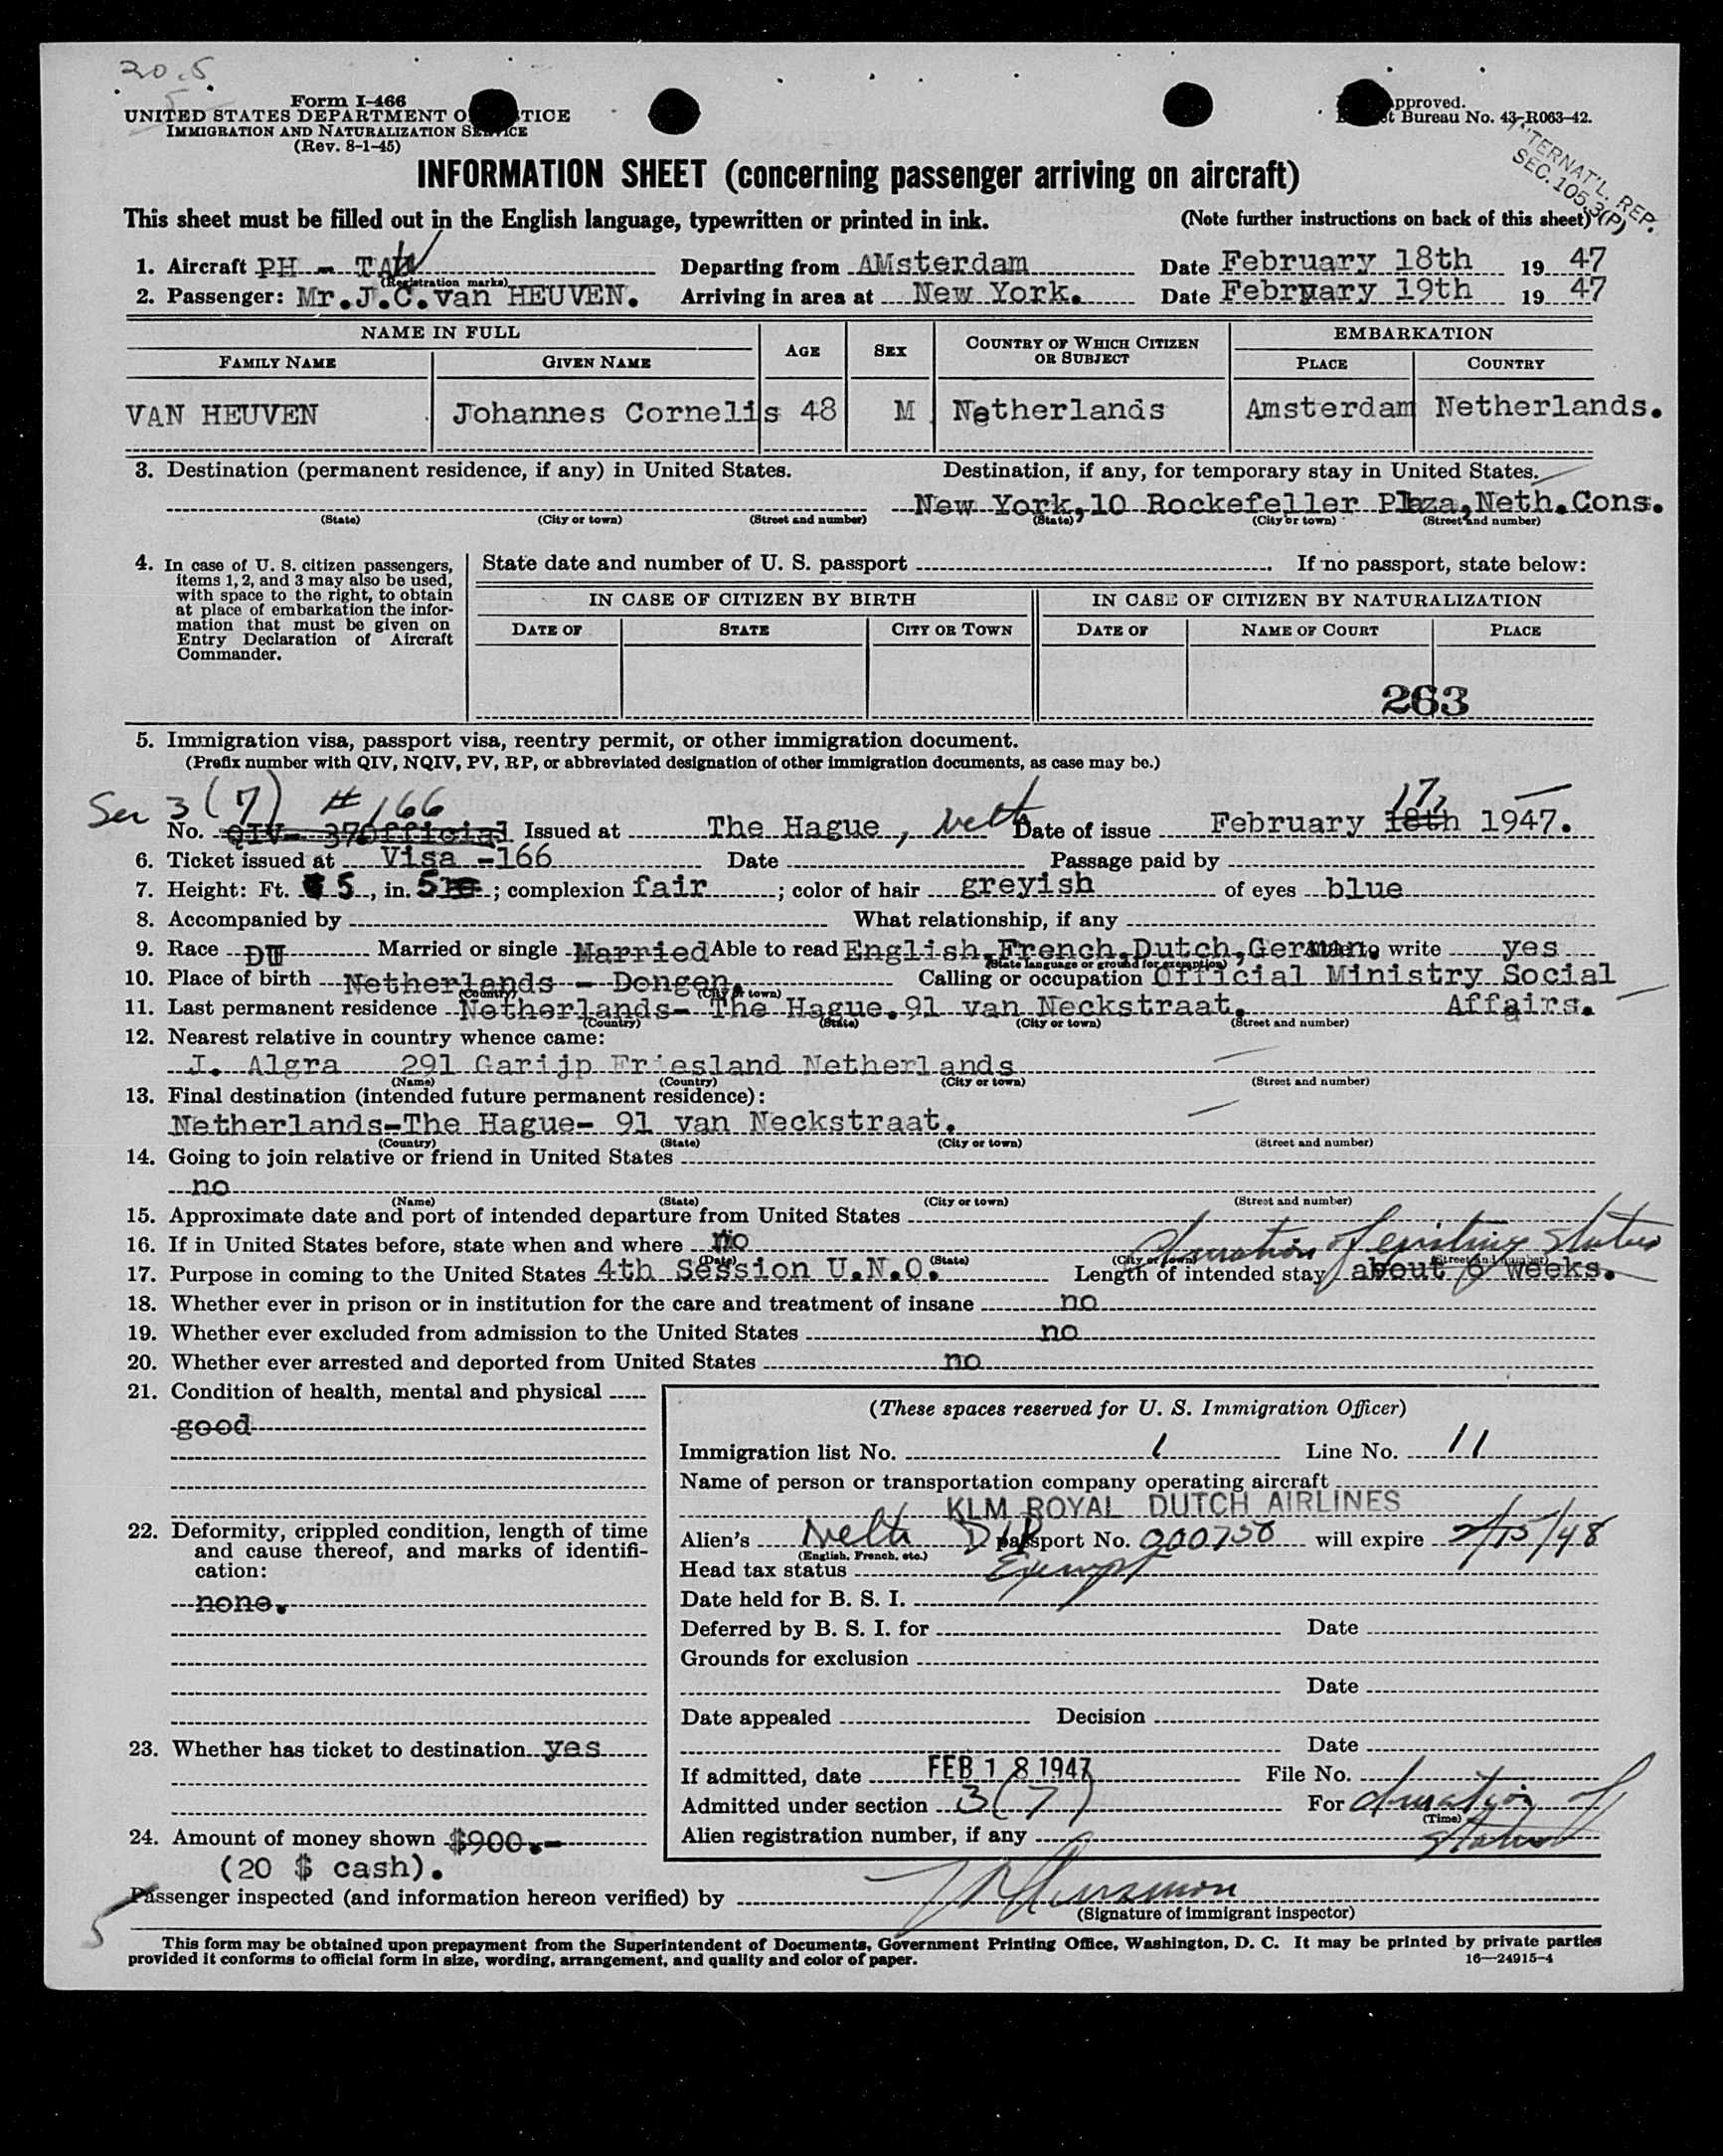 20.5
5
Form I-466
UNITED STATES DEPARTMENT O TICE
IMMIGRATION AND NATURALIZATION SERVICE
(Rev. 8-1-45)
pproved.
t Bureau No. 43-R063-42.
TERNAT'L. REP.
SEC. 105.3(P)
INFORMATION SHEET (concerning passenger arriving on aircraft)
This sheet must be filled out in the English language, typewritten or printed in ink. (Note further instructions on back of this sheet)
1. Aircraft PH - TA Departing from AMsterdam Date February 18th 19 47
(Registration marks)
2. Passenger: Mr.J.C.van HEUVEN. Arriving in area at New York. Date February 19th 19 47
NAME IN FULL AGE SEX COUNTRY OF WHICH CITIZEN OR SUBJECT EMBARKATION
FAMILY NAME GIVEN NAME PLACE COUNTRY
VAN HEUVEN Johannes Cornelis 48 M Netherlands Amsterdam Netherlands.
3. Destination (permanent residence, if any) in United States. Destination, if any, for temporary stay in United States.
New York,10 Rockefeller Plaza,Neth.Cons.
(State) (City or town) (Street and number) (State) (City or town) (Street and number)
4. In case of U. S. citizen passengers, items 1, 2, and 3 may also be used, with space to the right, to obtain at place of embarkation the information that must be given on Entry Declaration of Aircraft Commander.
State date and number of U. S. passport If no passport, state below:
IN CASE OF CITIZEN BY BIRTH IN CASE OF CITIZEN BY NATURALIZATION
DATE OF STATE CITY OR TOWN DATE OF NAME OF COURT PLACE
263
5. Immigration visa, passport visa, reentry permit, or other immigration document.
(Prefix number with QIV, NQIV, PV, RP, or abbreviated designation of other immigration documents, as case may be.)
3(7) #166 17,
No. QIV- 37Official Issued at The Hague, Neth Date of issue February 18th 1947.
6. Ticket issued at Visa -166 Date Passage paid by
7. Height: Ft. 5, in. 5; complexion fair; color of hair greyish of eyes blue
8. Accompanied by What relationship, if any
9. Race DU Married or single Married Able to read English,French,Dutch,German. write yes
(State language or ground for exemption)
10. Place of birth Netherlands - Dongen. Calling or occupation Official Ministry Social
(Country) (City or town)
11. Last permanent residence Netherlands- The Hague.91 van Neckstraat. Affairs.
(Country) (State) (City or town) (Street and number)
12. Nearest relative in country whence came:
J. Algra 291 Garijp Friesland Netherlands
(Name) (Country) (City or town) (Street and number)
13. Final destination (intended future permanent residence):
Netherlands-The Hague- 91 van Neckstraat.
(Country) (State) (City or town) (Street and number)
14. Going to join relative or friend in United States
no
(Name) (State) (City or town) (Street and number)
15. Approximate date and port of intended departure from United States
16. If in United States before, state when and where no duration of existing status
(Date) (State) (City or town) (Street and number)
17. Purpose in coming to the United States 4th Session U.N.O. Length of intended stay about 6 weeks.
18. Whether ever in prison or in institution for the care and treatment of insane no
19. Whether ever excluded from admission to the United States no
20. Whether ever arrested and deported from United States no
21. Condition of health, mental and physical
good
22. Deformity, crippled condition, length of time and cause thereof, and marks of identification:
none.
23. Whether has ticket to destination yes
24. Amount of money shown $900.-
(20 $ cash).
(These spaces reserved for U. S. Immigration Officer)
Immigration list No. 1 Line No. 11
Name of person or transportation company operating aircraft
KLM ROYAL DUTCH AIRLINES
Alien's Neth Dip passport No. 000750 will expire 2/15/48
(English, French, etc.)
Head tax status Exempt
Date held for B. S. I.
Deferred by B. S. I. for Date
Grounds for exclusion
Date
Date appealed Decision
Date
If admitted, date FEB 18 1947 File No.
Admitted under section 3(7) For duration of
(Time)
Alien registration number, if any status
Passenger inspected (and information hereon verified) by
(Signature of immigrant inspector)
5
This form may be obtained upon prepayment from the Superintendent of Documents, Government Printing Office, Washington, D. C. It may be printed by private parties
provided it conforms to official form in size, wording, arrangement, and quality and color of paper. 16—24915-4